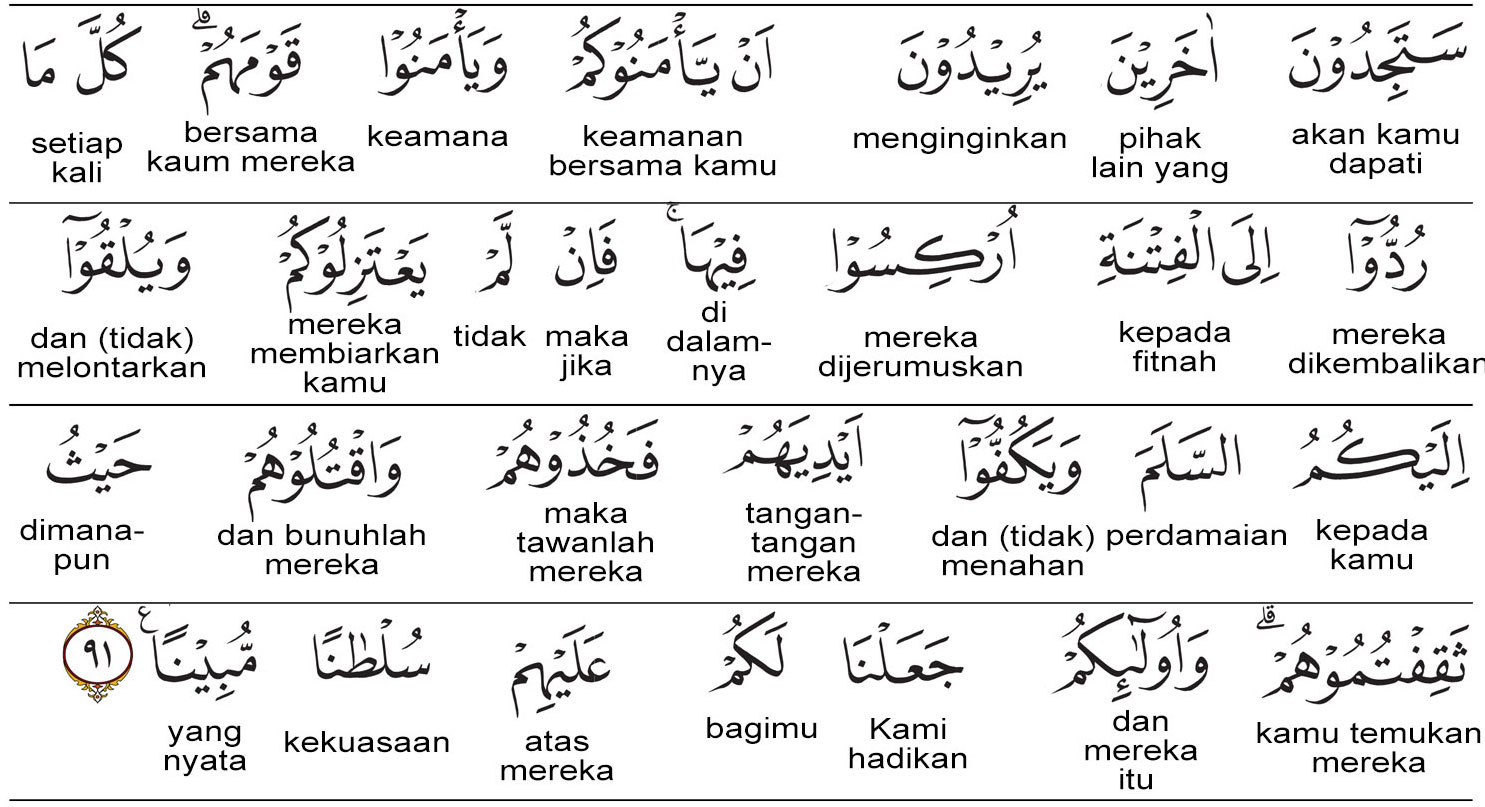 سَتَجِدُوْنَ اٰخَرِيْنَ يُرِيْدُوْنَ اَنْ يَّأْمَنُوْكُمْ وَيَأْمَنُوْا قَوْمَهُمْ ۗ كُلَّ مَا
akan kamu dapati pihak lain yang menginginkan keamanan bersama kamu keamana bersama kaum mereka setiap kali
رُدُّوْٓا اِلَى الْفِتْنَةِ اُرْكِسُوْا فِيْهَا ۚ فَاِنْ لَّمْ يَعْتَزِلُوْكُمْ وَيُلْقُوْٓا
mereka dikembalikan kepada fitnah mereka dijerumuskan di dalam-nya maka jika tidak mereka membiarkan kamu dan (tidak) melontarkan
اِلَيْكُمُ السَّلَمَ وَيَكُفُّوْٓا اَيْدِيَهُمْ فَخُذُوْهُمْ وَاقْتُلُوْهُمْ حَيْثُ
kepada kamu perdamaian dan (tidak) menahan tangan-tangan mereka maka tawanlah mereka dan bunuhlah mereka dimana-pun
ثَقِفْتُمُوْهُمْ ۗ وَاُولٰۤىِٕكُمْ جَعَلْنَا لَكُمْ عَلَيْهِمْ سُلْطٰنًا مُّبِيْنًا ࣖ ٩١
kamu temukan mereka dan mereka itu Kami hadikan bagimu atas mereka kekuasaan yang nyata